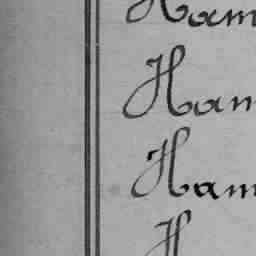 Ham
Ham
Ham
H